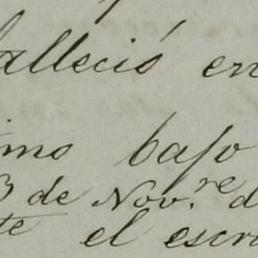 falleció en
imo bajo
3 de Nov.re d
te el escri